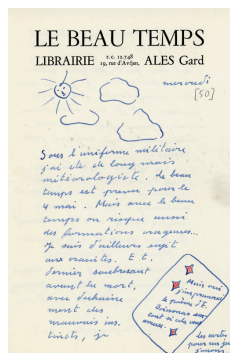 LE BEAU TEMPS
LIBRAIRIE R.C. 12.748 19, rue d'Avéjan, ALES Gard
mercredi
[50]
Sous l'uniforme militaire
j'ai été de longs mois
météorologiste. Le beau
temps est prévu pour le
4 mai. Mais avec le beau
temps on risque aussi
des formations orageuses...
Je suis d'ailleurs sujet
aux
E t.
dernier soubresaut
avant la mort,
avec
mort des
mauvais ins.
tincts, je
Mais oui
j'imprimerai
le poème d'E.
tout si cela vous
amuse.
Les cartes
pour un jeu